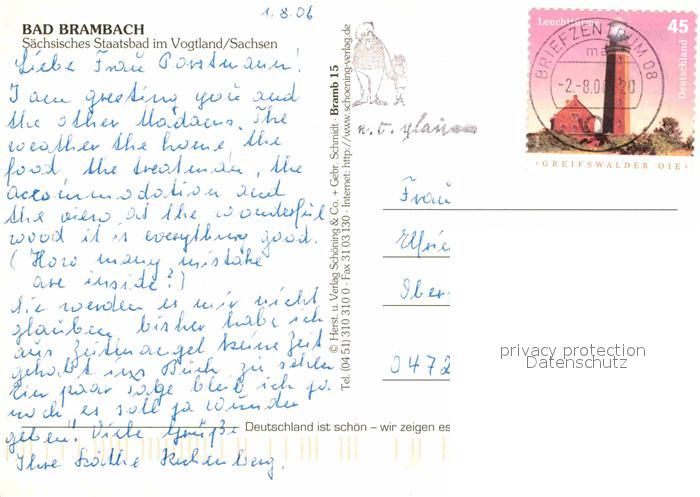 1.8.06
BAD BRAMBACH
Sächsisches Staatsbad im Vogtland/Sachsen
Liebe Frau Porstmann!
I am greeting you and
the other Madams. The
weather the home, the
food, the treatman, the
accommodation and
the view at the wonderful
wood it is everything good.
(How many mistake
are inside?)
Sie werden es mir nicht
glauben, bisher habe ich
aus Zeitmangel keine Zeit
gehabt ins Buch zu sehen
Ein paar Tage bleib ich ja
noch es soll ja Wunder
geben! Viele Grüße
Ihre Käthe
Deutschland ist schön – wir zeigen es
© Herst. u. Verlag Schöning & Co. + Gebr. Schmidt · Bramb 15
Tel. (04 51) 310 310 0 · Fax 31 03 130 · Internet: http://www.schoening-verlag.de
Leuchttürme
45
Deutschland
BRIEFZENTRUM 08
-2.-8.06-20
GREIFSWALDER OIE
Frau
0472
privacy protection
Datenschutz